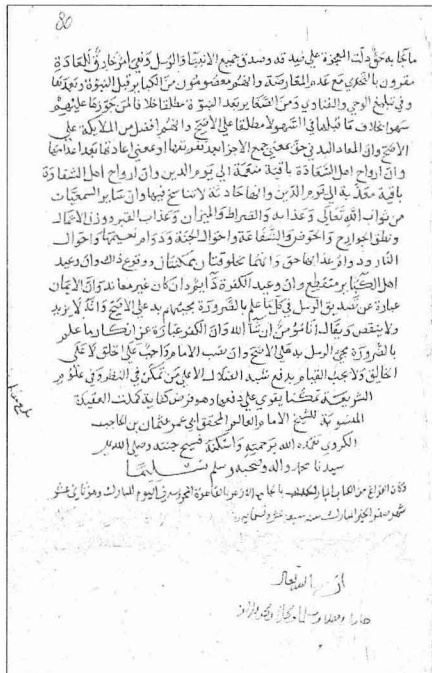 80
ما جاء به حق دلت المعجزة على فيه قد وصدق جميع الانبيا والرسل وهي امر خارق للعادة
مقرون بالتحدي مع عدم المعارضة وانهم معصومون من الكباير قبل النبوة وبعدها
وفي تبليغ الوحي والفتاوي ومن الصغاير بعد النبوة مطلقا خلافا لمن جوزها عليهم
سهوا بخلاف ما قبلها في السهو لا مطلقا على الاصح وانهم افضل من الملايكة على
الاصح وان المعاد البدني حق بمعنى جمع الاجزا بعد تفرقتها او بمعنى اعادتها بعد اعدامها
وان ارواح اهل السعادة باقية منعمة الى يوم الدين وان ارواح اهل الشقاوة
باقية معذبة الى يوم الدين وانها حادثة لا تناسخ فيها وان ساير السمعيات
من ثواب الله تعالى وعذابه والصراط والميزان وعذاب القبر ووزن الاعمال
ونطق الجوارح والحوض والشفاعة واحوال الجنة ودوام نعيمها واحوال
النار ودوام عذابها حق وانهما مخلوقتان ووقوع ذلك وان وعيد
اهل الكباير منقطع وان وعيد الكفرة دايم وان كان غير معاند وان الايمان
عبارة عن تصديق الرسل في كل ما علم بالضرورة مجيهم به على الاصح وانه لا يزيد
ولا ينقص ويقال انا مؤمن ان شا الله وان الكفر عبارة عن انكار ما علم
بالضرورة مجي الرسل به على الاصح وان نصب الامام واجب على الخلق لا على
الخالق ولا يجب القيام بدفع شبه الضلال الا على من تمكن في النظر وفي علوم
الشريعة تمكنا يقوي على دفعها وهو فرض كفاية كملت العقيدة
المنسوبة للشيخ الامام العالم المحقق ابي عمر عثمان بن الحاجب
الكردي تغمده الله برحمته واسكنه فسيح جنته وصلى الله على
سيدنا محمد واله وصحبه وسلم تسليما
وكان الفراغ من الكتاب المبارك بالجامع الازهر بالقاهرة في اليوم المبارك وهو ثاني عشر
شهر صفر الخير المبارك سنة